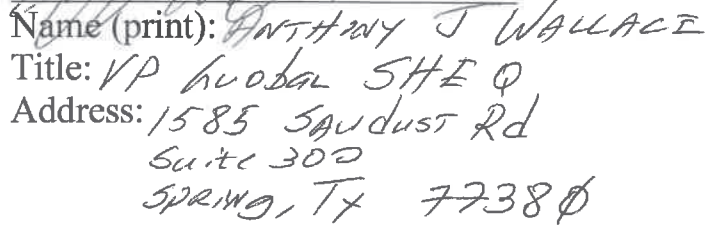 Name (print): ANTHONY J WALLACE
Title: VP GLOBAL SHE Q
Address: 1585 SAWDUST Rd
Suite 300
SPRING, TX 77380